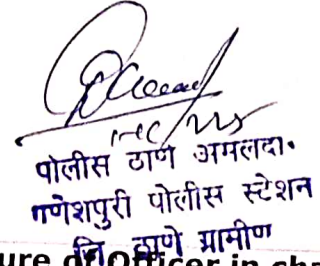 पोलीस ठाणे अमलदा.
गणेशपुरी पोलीस स्टेशन
जि ठाणे ग्रामीण
Officer in